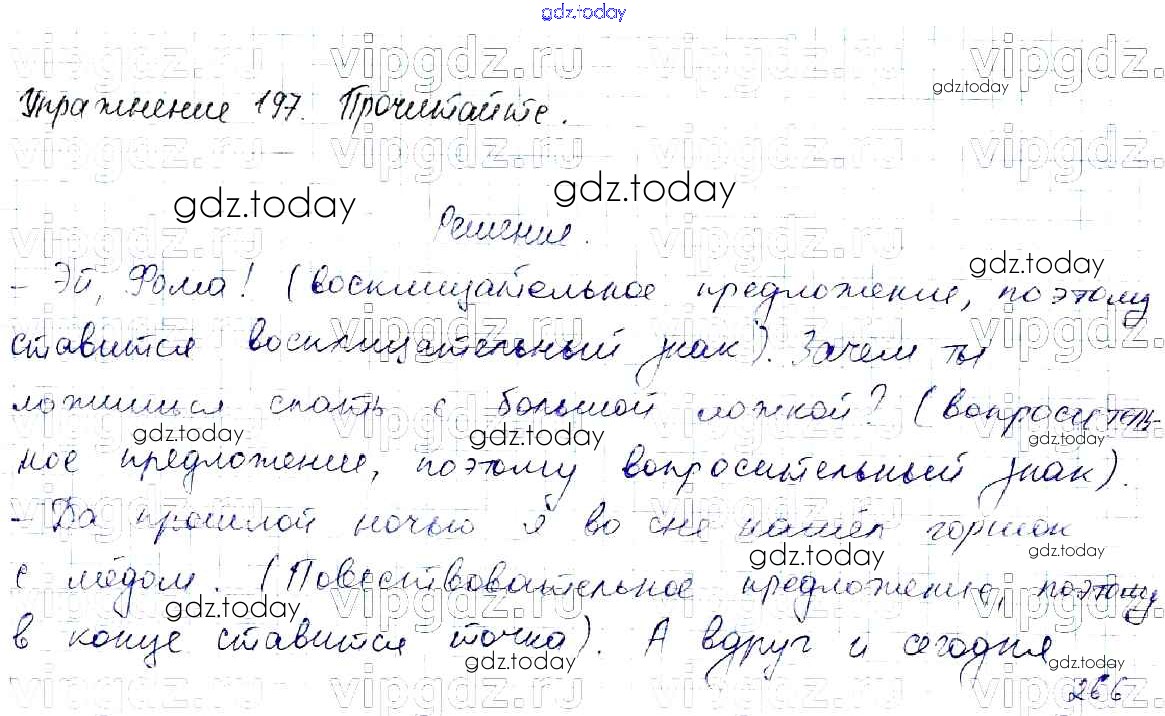 gdz.today
Упражнение 197. Прочитайте.
Решение.
- Эй, Фома! (восклицательное предложение, поэтому
ставится восклицательный знак). Зачем ты
ложишься спать с большой ложкой? (вопроситель-
ное предложение, поэтому вопросительный знак).
- Да прошлой ночью я во сне нашёл горшок
с мёдом. (Повествовательное предложение, поэтому
в конце ставится точка). А вдруг и сегодня
266